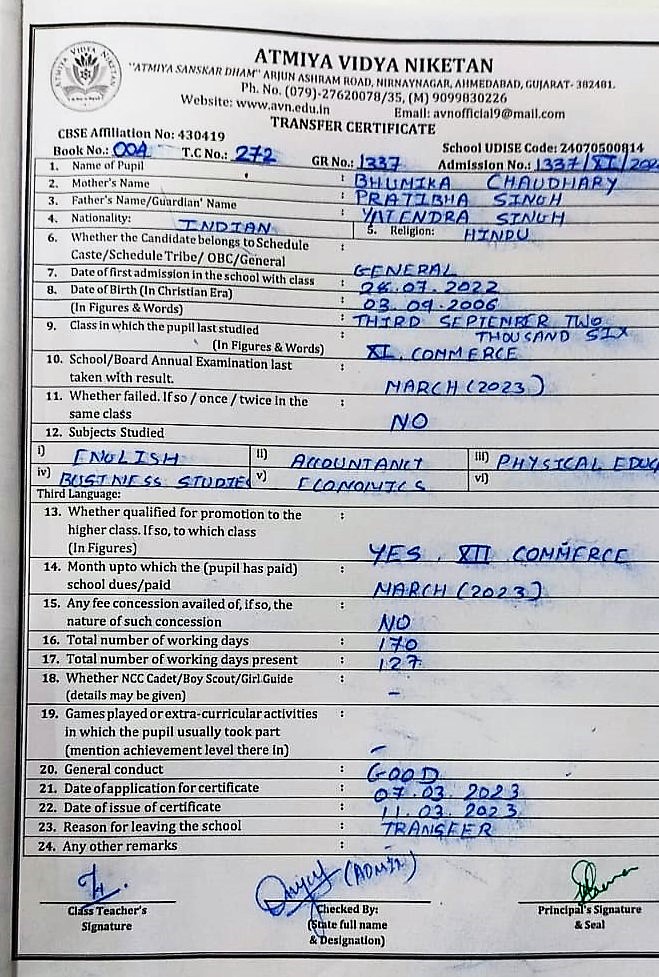 ATMIYA VIDYA NIKETAN
ATMIYA VIDYA NIKETAN
"ATMIYA SANSKAR DHAM" ARJUN ASHRAM ROAD, NIRNAYNAGAR, AHMEDABAD, GUJARAT- 382481.
Ph. No. (079)-27620078/35, (M) 9099830226
Website: www.avn.edu.in Email: avnofficial9@mail.com
TRANSFER CERTIFICATE
CBSE Affiliation No: 430419 School UDISE Code: 24070500814
Book No.: 004 T.C No.: 272 GR No.: 1337 Admission No.: 1337/XI/202
1. Name of Pupil : BHUMIKA CHAUDHARY
2. Mother's Name : PRATIBHA SINGH
3. Father's Name/Guardian' Name : YATENDRA SINGH
4. Nationality: INDIAN 5. Religion: HINDU
6. Whether the Candidate belongs to Schedule :
Caste/Schedule Tribe/ OBC/General GENERAL
7. Date of first admission in the school with class : 26.07.2022
8. Date of Birth (In Christian Era) : 03.09.2006
(In Figures & Words) THIRD SEPTEMBER TWO
9. Class in which the pupil last studied : THOUSAND SIX
(In Figures & Words) XI. COMMERCE
10. School/Board Annual Examination last :
taken with result. MARCH (2023)
11. Whether failed. If so / once / twice in the :
same class NO
12. Subjects Studied
i) ENGLISH ii) ACCOUNTANCY iii) PHYSICAL EDUC
iv) BUSTNESS STUDIES v) ECONOMICS vi)
Third Language:
13. Whether qualified for promotion to the :
higher class. If so, to which class
(In Figures) YES. XII COMMERCE
14. Month upto which the (pupil has paid) :
school dues/paid MARCH (2023)
15. Any fee concession availed of, if so, the :
nature of such concession NO
16. Total number of working days : 170
17. Total number of working days present : 127
18. Whether NCC Cadet/Boy Scout/Girl Guide :
(details may be given) –
19. Games played or extra-curricular activities :
in which the pupil usually took part
(mention achievement level there in) –
20. General conduct : GOOD
21. Date of application for certificate : 07.03.2023
22. Date of issue of certificate : 11.03.2023
23. Reason for leaving the school : TRANSFER
24. Any other remarks :
(ADMIN)
Class Teacher's Checked By: Principal's Signature
Signature (State full name & Seal
& Designation)